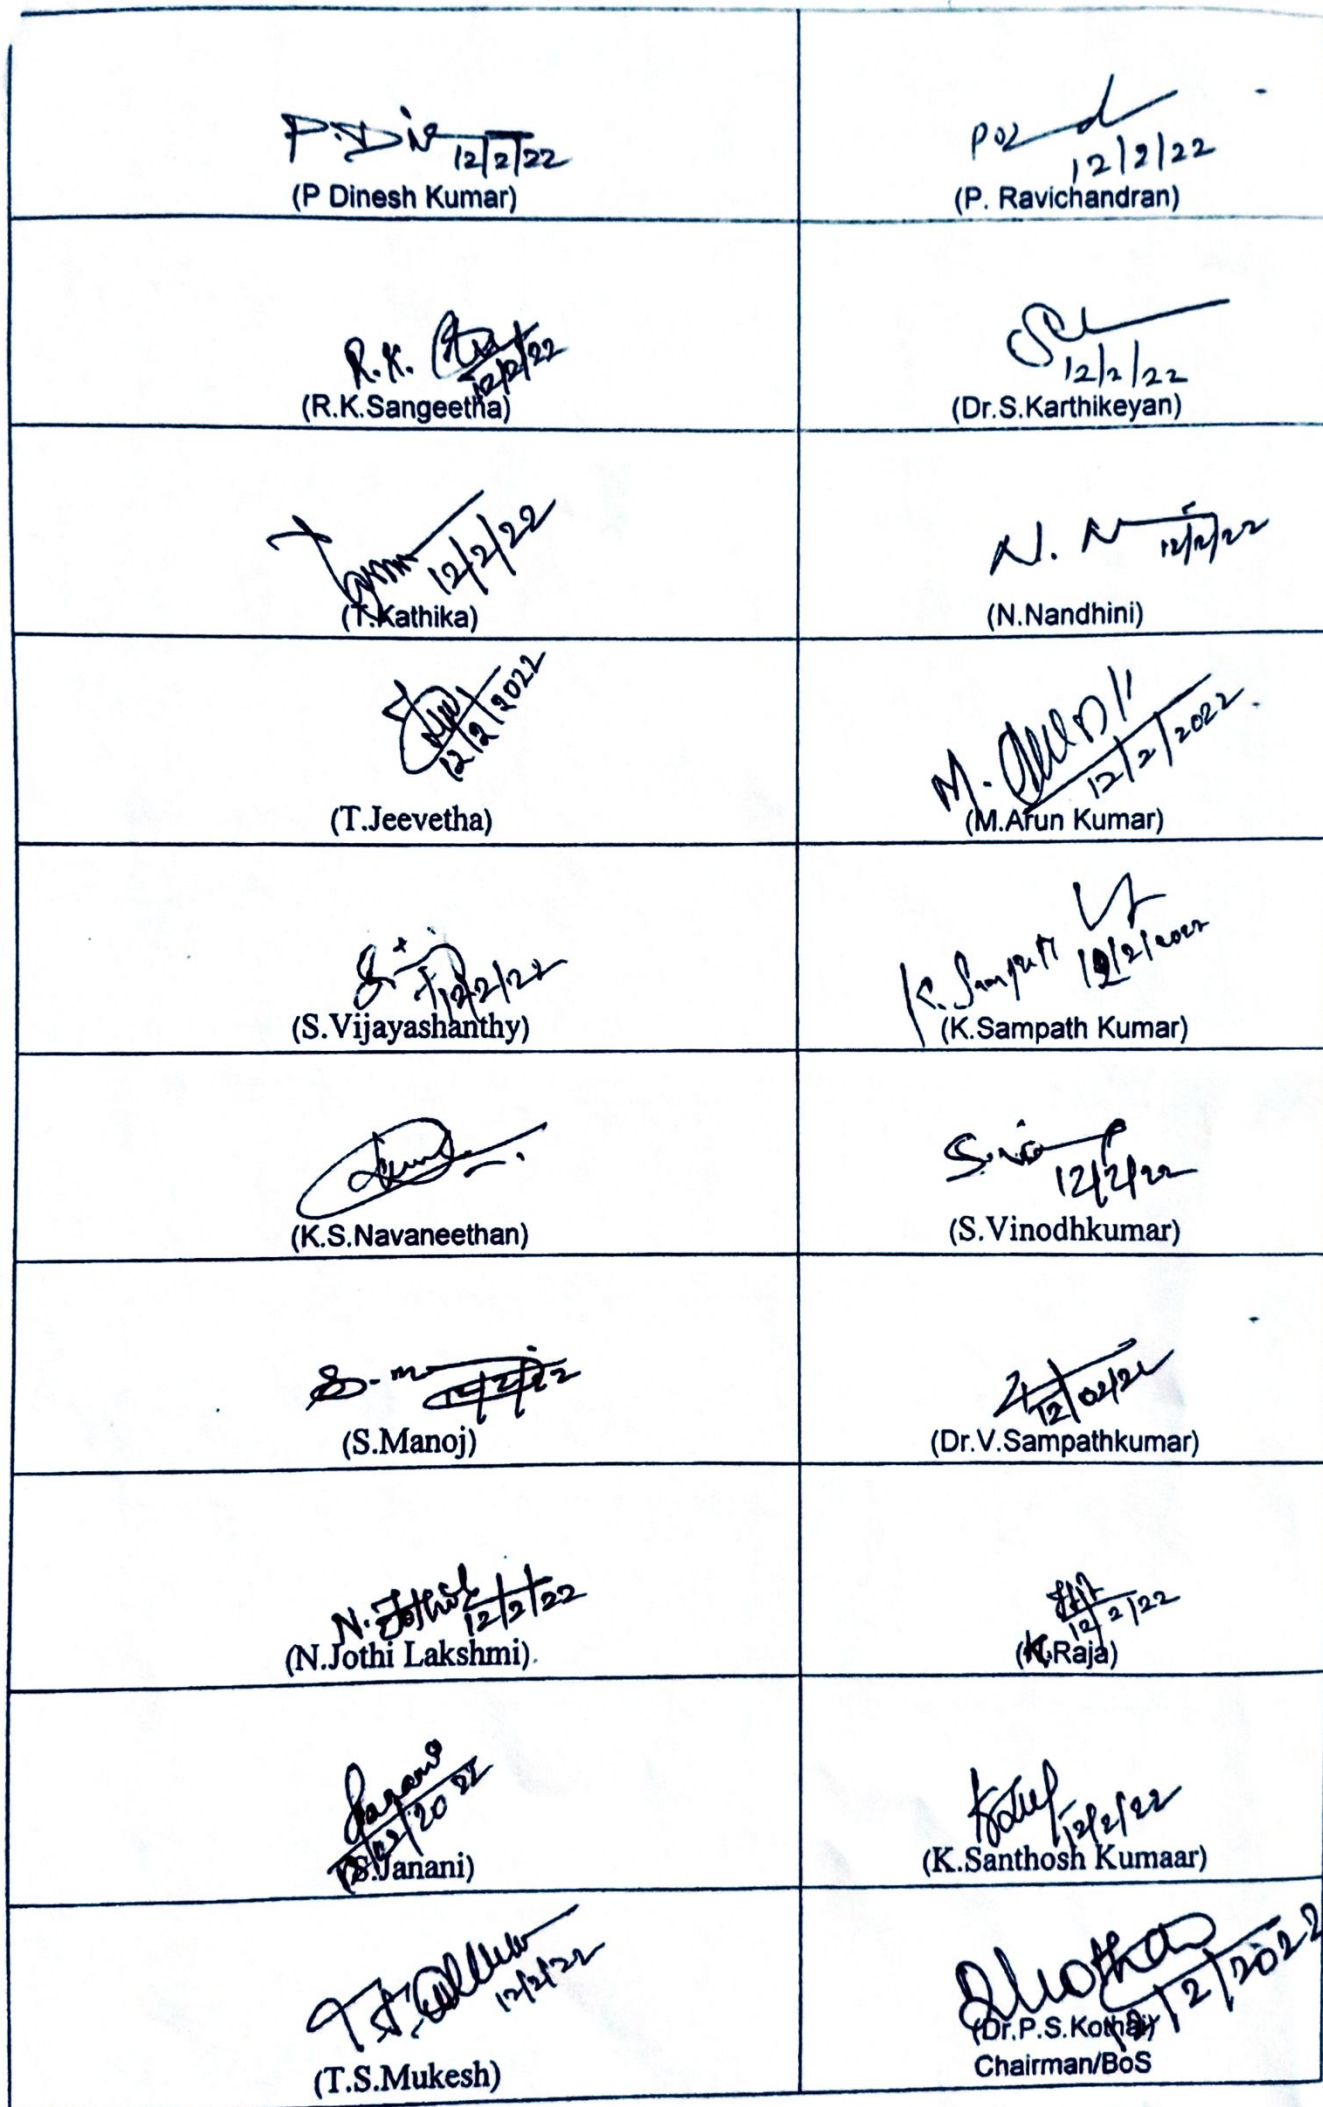 P.Din 12/2/22
(P Dinesh Kumar)
12/2/22
(P. Ravichandran)
R.K. 12/2/22
(R.K.Sangeetha)
12/2/22
(Dr.S.Karthikeyan)
12/2/22
(T.Kathika)
N. N 12/2/22
(N.Nandhini)
12/2/2022
(T.Jeevetha)
M. 12/2/2022
(M.Arun Kumar)
12/2/22
(S.Vijayashanthy)
K. Sampath 12/2/2022
(K.Sampath Kumar)
(K.S.Navaneethan)
12/2/22
(S.Vinodhkumar)
S. m 12/2/22
(S.Manoj)
12/02/22
(Dr.V.Sampathkumar)
N. Jothi 12/2/22
(N.Jothi Lakshmi)
12/2/22
(K.Raja)
Janani
12/02/2022
(S.Janani)
12/2/22
(K.Santhosh Kumaar)
T.S. 12/2/22
(T.S.Mukesh)
12/2/2022
(Dr.P.S.Kothai)
Chairman/BoS